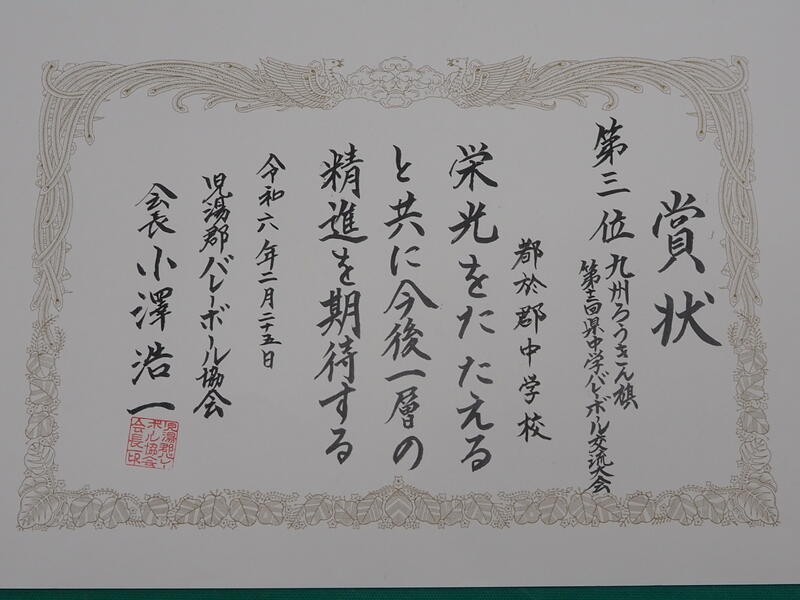 賞状
第三位
九州ろうきん旗
第十三回県中学バレーボール交流大会
都於郡中学校
栄光をたたえる
と共に今後一層の
精進を期待する
令和六年二月二十五日
児湯郡バレーボール協会
会長 小澤浩一
児湯郡バレー
ボール協会
会長印